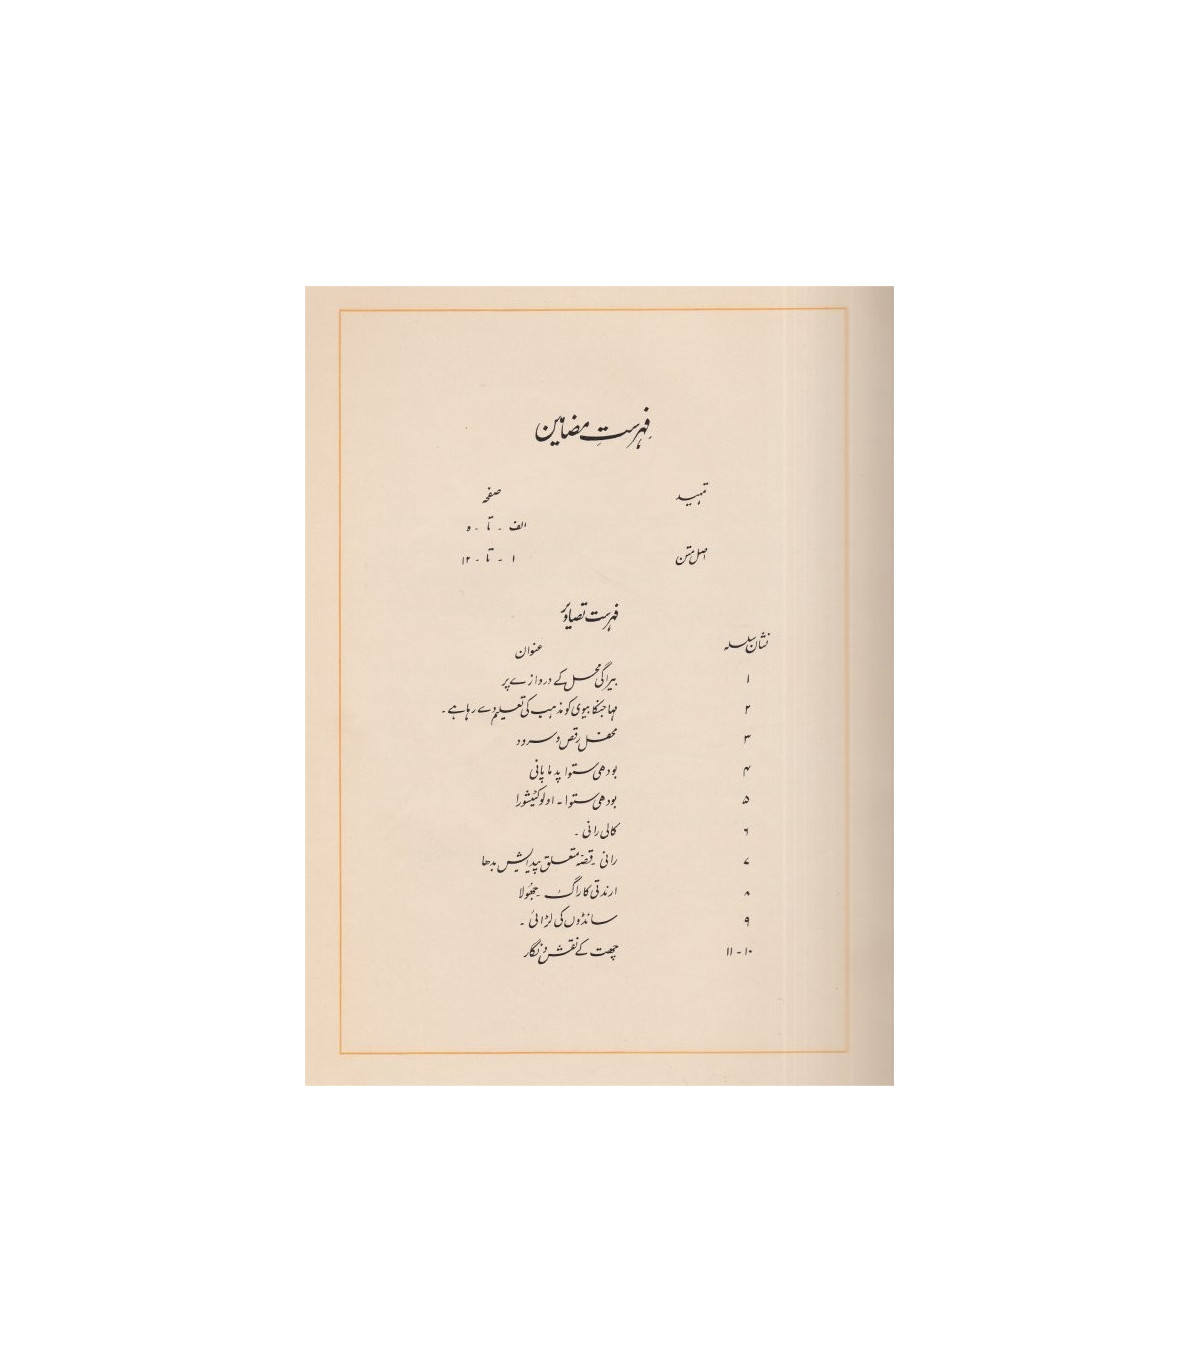 فہرستِ مضامین
تمہید صفحہ
الف - تا - ہ
اصل متن ۱ - تا - ۱۲
فہرست تصاویر
نشان سلسلہ عنوان
۱ بیراگی محل کے دروازے پر
۲ مہاجنکا بیوی کو مذہب کی تعلیم دے رہا ہے۔
۳ محفل رقص و سرود
۴ بودھی ستوا پدماپانی
۵ بودھی ستوا - اولوکٹیشورا
۶ کالی رانی -
۷ رانی - قصّہ متعلق پیدایش بدھا
۸ ارندتی کا راگ - جھُولا
۹ سانڈوں کی لڑائی -
۱۰ - ۱۱ چھت کے نقش و نگار